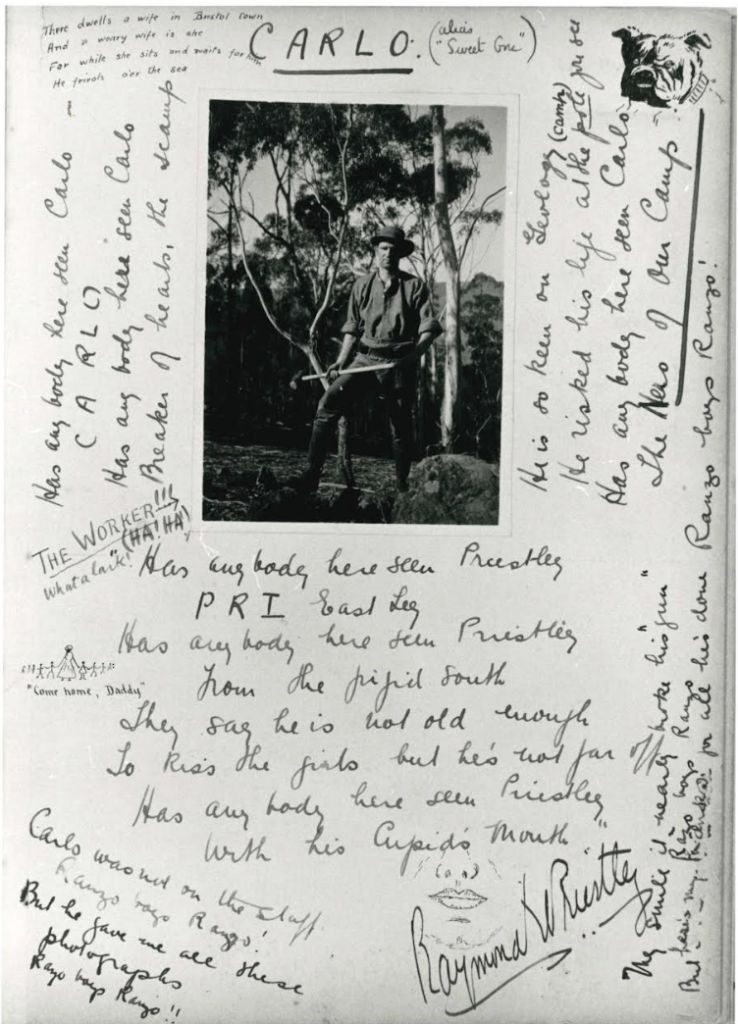 There dwells a wife in Bristol town
And a weary wife is she
For while she sits and waits for him
He friends o'er the sea
CARLO.
(alias "Sweet One")
Has any body here seen Carlo
CARLO
Has any body here seen Carlo
Breaker of hearts, the scamp
He is so keen on Geology (camp)
He risked his life at the pole you see
Has any body here seen Carlo
The Nero of Our Camp
THE WORKER!!!
(HA! HA!)
What a lark!
Has any body here seen Priestley
PRI East Leg
Has any body here seen Priestley
From the frigid South
They say he is not old enough
To kiss the girls but he's not far off
Has any body here seen Priestley
With his Cupid's Mouth"
"Come home, Daddy"
Carlo was not on the staff
Ranzo boys Ranzo!
But he gave me all these
photographs
Ranzo boys Ranzo!!
Raymond E Priestley
My smile it nearly broke his "gun"
Ranzo boys Ranzo
But here's my for all his done
Ranzo boys Ranzo!